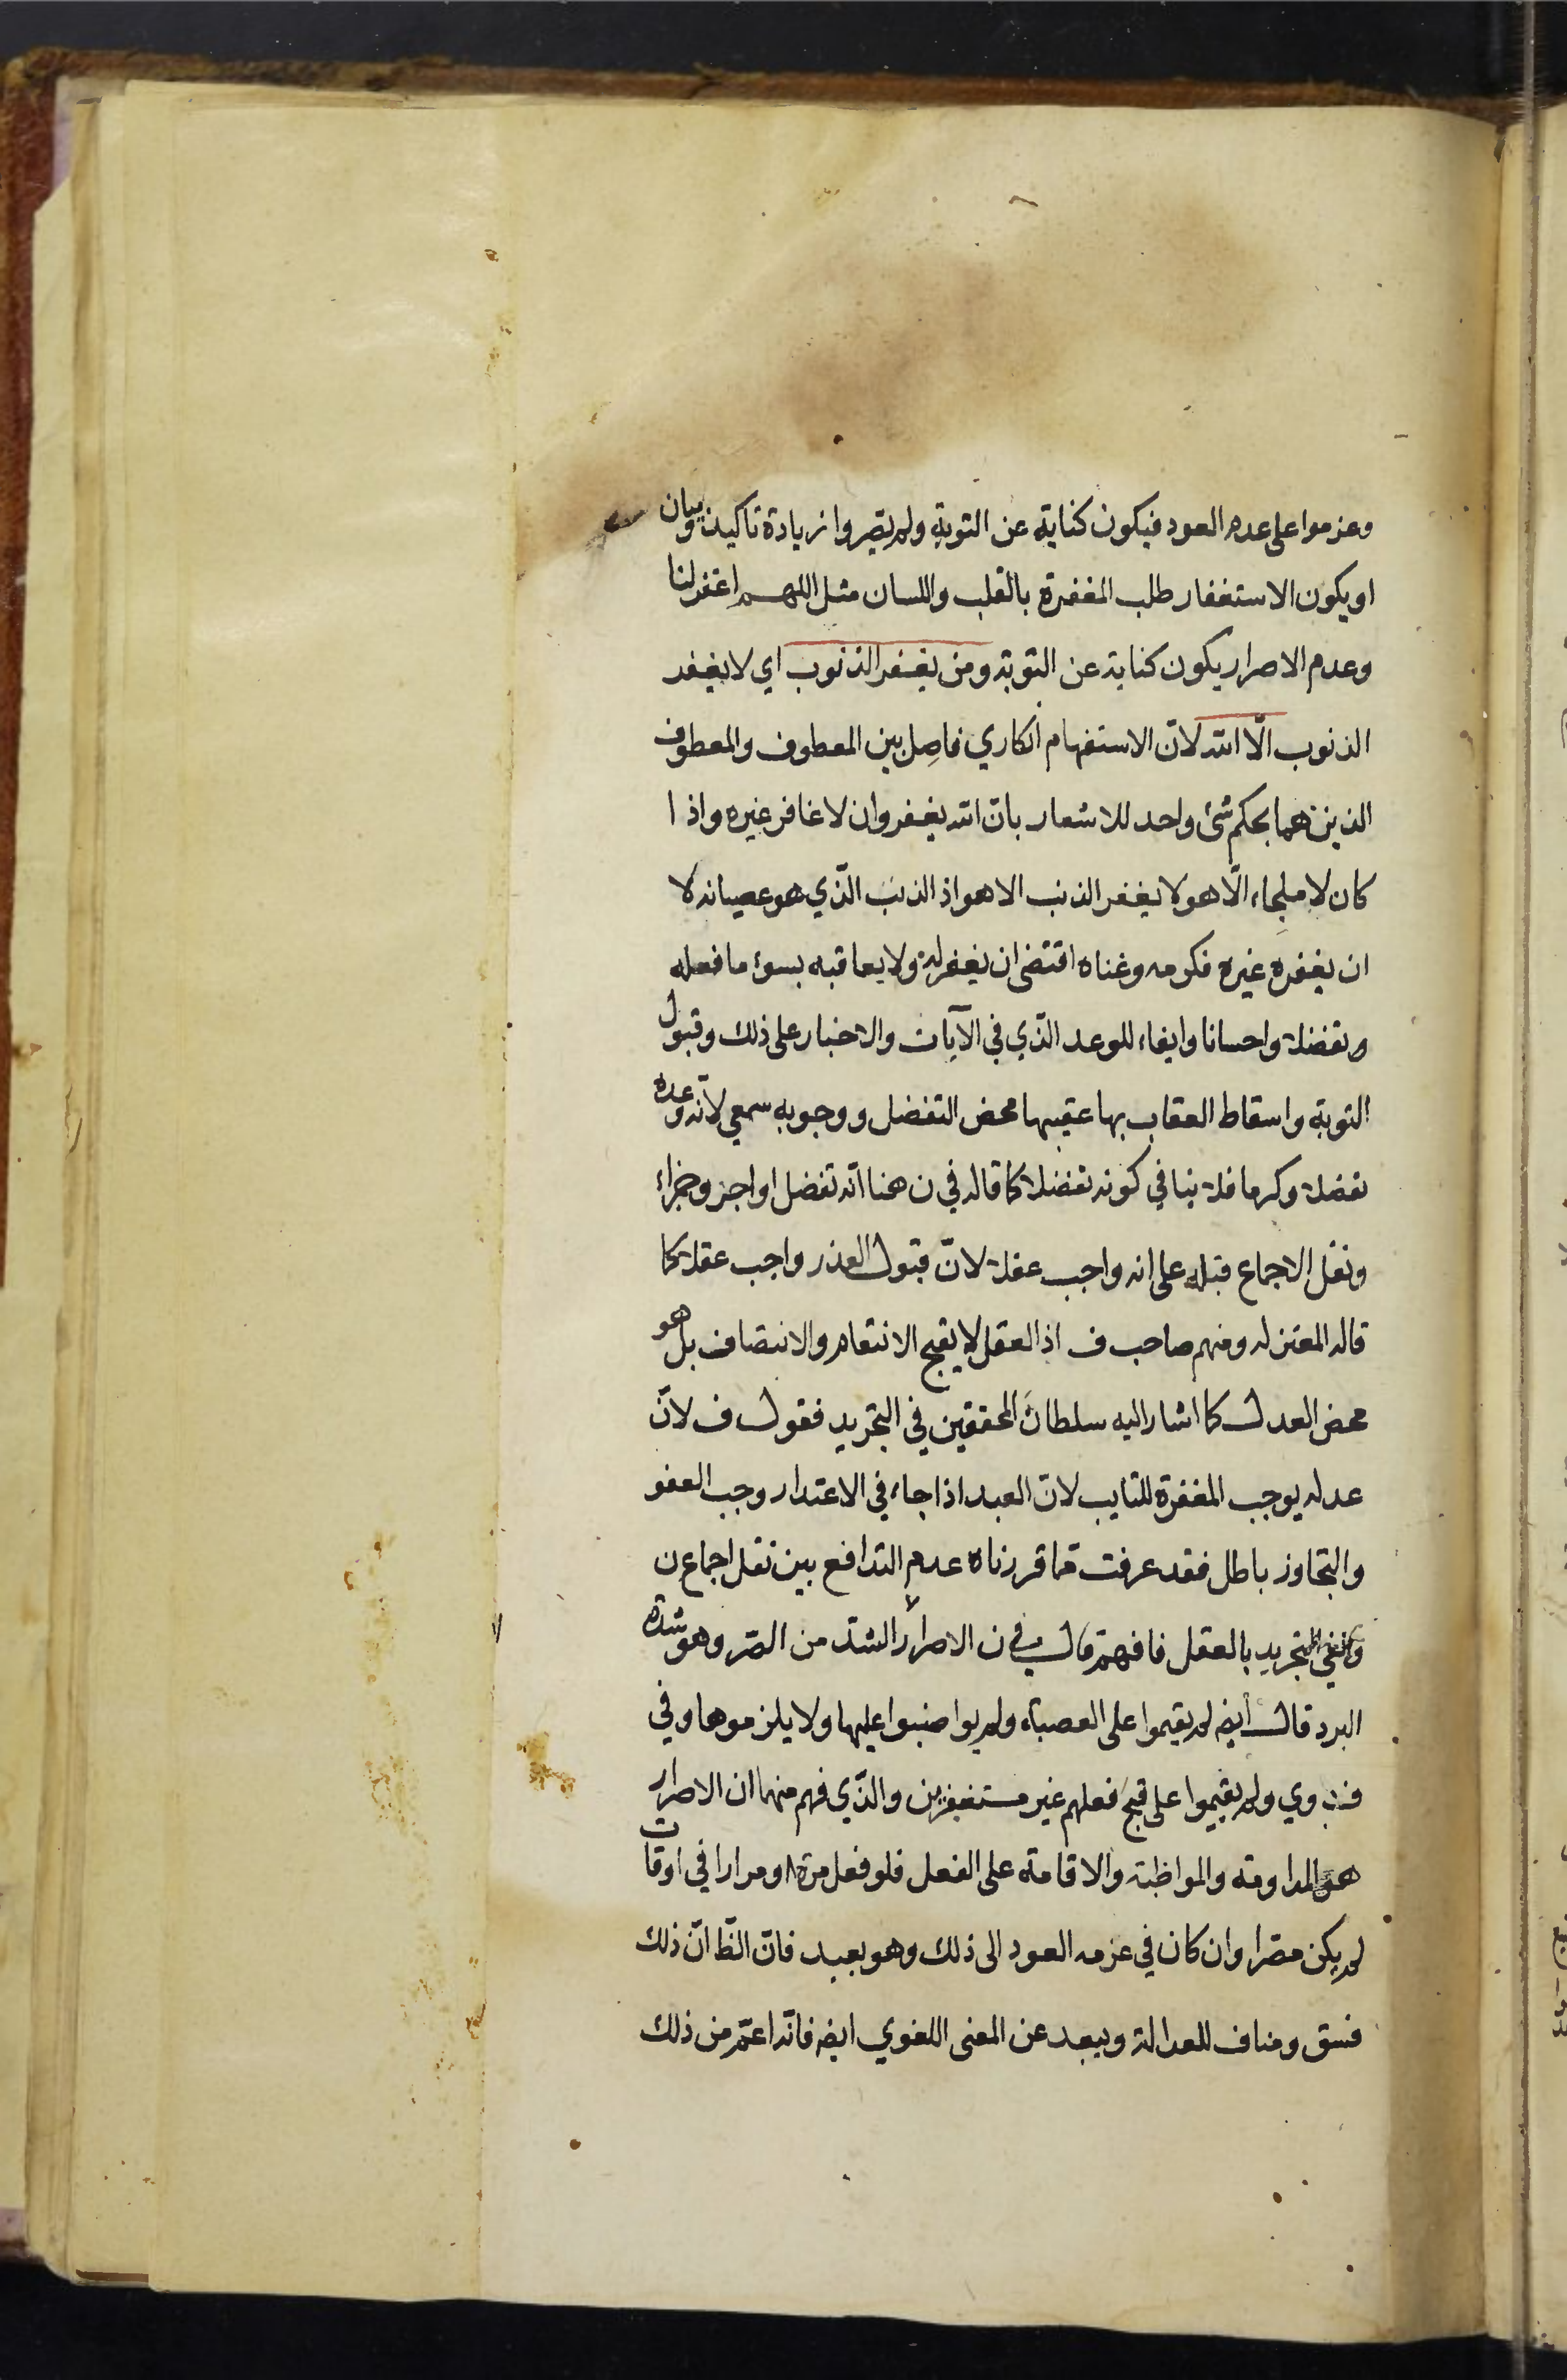 وعزموا على عدم العود فيكون كناية عن التوبة ولم يصروا زيادة تاكيد وبيان
او يكون الاستغفار طلب المغفرة بالقلب واللسان مثل اللهم اغفر لنا
وعدم الاصرار يكون كناية عن التوبة ومن يغفر الذنوب اي لا يغفر
الذنوب الّا الله لانّ الاستفهام انكاري فاصل بين المعطوف والمعطوف
الذين هما بحكم شئ واحد للاشعار بانّ الله يغفر وان لا غافر غيره واذا
كان لا ملجاء الّا هو لا يغفر الذنب الا هو اذ الذنب الّذي هو عصيانه لا
ان يغفره غيره فكرمه وغناه اقتضى ان يغفر له ولا يعاقبه بسوء ما فعله
وتفضلا واحسانا وايفاء للوعد الّذي في الآيات والاخبار على ذلك وقبول
التوبة واسقاط العقاب بها عقيبها محض التفضل ووجوبه سمعي لانّه وعده
تفضلا وكرما فلا ينافي كونه تفضلا كما قاله في ن هنا انّه تفضل او اجر وجزاء
ونقل الاجماع قبله على انه واجب عقلا لانّ قبول العذر واجب عقلا كما
قاله المعتزله ومنهم صاحب ف اذ العقل لا يقبح الانتقام والانتصاف بل هو
محض العدل كما اشار اليه سلطان المحققين في التجريد فقول ف لانّ
عدله يوجب المغفرة للتايب لانّ العبد اذا جاء في الاعتذار وجب العفو
والتجاوز باطل فقد عرفت مما قررناه عدم التدافع بين نقل اجماع ن
ونفي التجريد بالعقل فافهم قال في ن الاصرار الشدّ من الصّر وهو شدة
البرد قال أيضه لم يقيموا على المعصية ولم يواضبوا عليها ولا يلزموها وفي
ف وي ولم يقيموا على قبح فعلهم غير مستغفرين والّذي فهم منهما ان الاصرار
هو المداومة والمواظبة والاقامة على الفعل فلو فعل مرة او مرارا في اوقات
لم يكن مصّرا وان كان في عزمه العود الى ذلك وهو بعيد فانّ الظّ انّ ذلك
فسق ومناف للعدالة وبيعد عن المعنى اللغوي ايضه فانّه اعمّ من ذلك